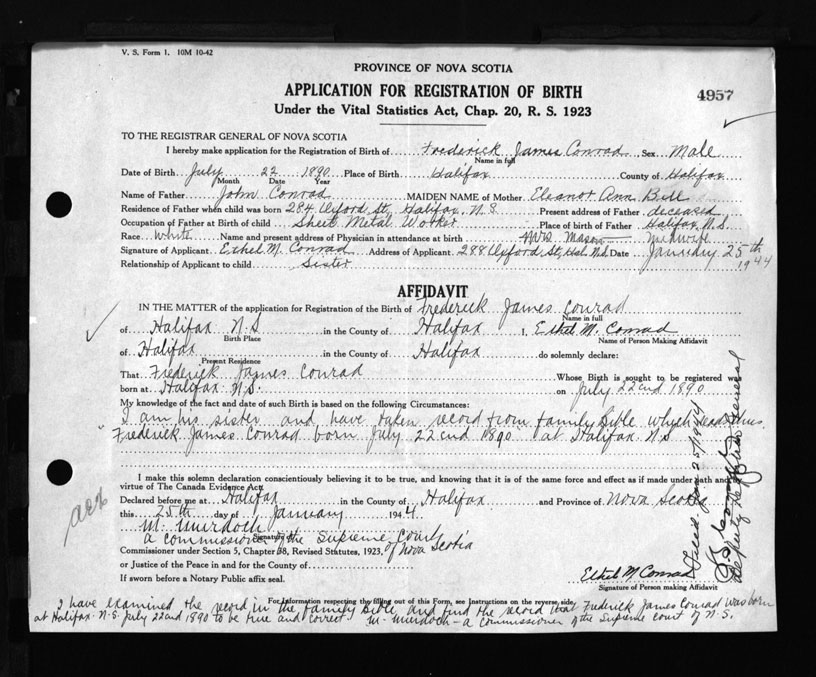 V. S. Form 1. 10M 10-42
PROVINCE OF NOVA SCOTIA
APPLICATION FOR REGISTRATION OF BIRTH
4957
Under the Vital Statistics Act, Chap. 20, R. S. 1923
TO THE REGISTRAR GENERAL OF NOVA SCOTIA
I hereby make application for the Registration of Birth of Frederick James Conrad Sex Male
Name in full
Date of Birth July 22 1890 Place of Birth Halifax County of Halifax
Month Date Year
Name of Father John Conrad MAIDEN NAME of Mother Eleanor Ann Bell
Residence of Father when child was born 284 St, Halifax, N.S. Present address of Father deceased
Occupation of Father at Birth of child Sheet Metal Worker Place of birth of Father Halifax N.S.
Race White Name and present address of Physician in attendance at birth Mrs Mason Midwife
Signature of Applicant Ethel M. Conrad Address of Applicant 288 St, Hal. N.S. Date January 25th 1944
Relationship of Applicant to child Sister
AFFIDAVIT
IN THE MATTER of the application for Registration of the Birth of Frederick James Conrad
Name in full
of Halifax N.S in the County of Halifax I, Ethel M. Conrad
Birth Place Name of Person Making Affidavit
of Halifax in the County of Halifax do solemnly declare:
Present Residence
That Frederick James Conrad Whose Birth is sought to be registered was
born at Halifax N.S. on July 22nd 1890
My knowledge of the fact and date of such Birth is based on the following Circumstances:
I am his sister and have taken record from family Bible which reads thus
Frederick James Conrad born July 22nd 1890 at Halifax N.S
I make this solemn declaration conscientiously believing it to be true, and knowing that it is of the same force and effect as if made under oath and by
virtue of The Canada Evidence Act.
Declared before me at Halifax in the County of Halifax and Province of Nova Scotia
this 25th day of January 1944
M. Murdoch
Signature of
a commissioner of the Supreme Court
of Nova Scotia
Commissioner under Section 5, Chapter 38, Revised Statutes, 1923,
or Justice of the Peace in and for the County of
If sworn before a Notary Public affix seal.
Ethel M Conrad
Signature of Person making Affidavit
Filed Jan 25/1944
Deputy Registrar General
For Information respecting the filling out of this Form, see Instructions on the reverse side.
I have examined the record in the family Bible and find the record that Frederick James Conrad was born
at Halifax N.S. July 22nd 1890 to be true and correct M. Murdoch - a commissioner of the Supreme Court of N.S.